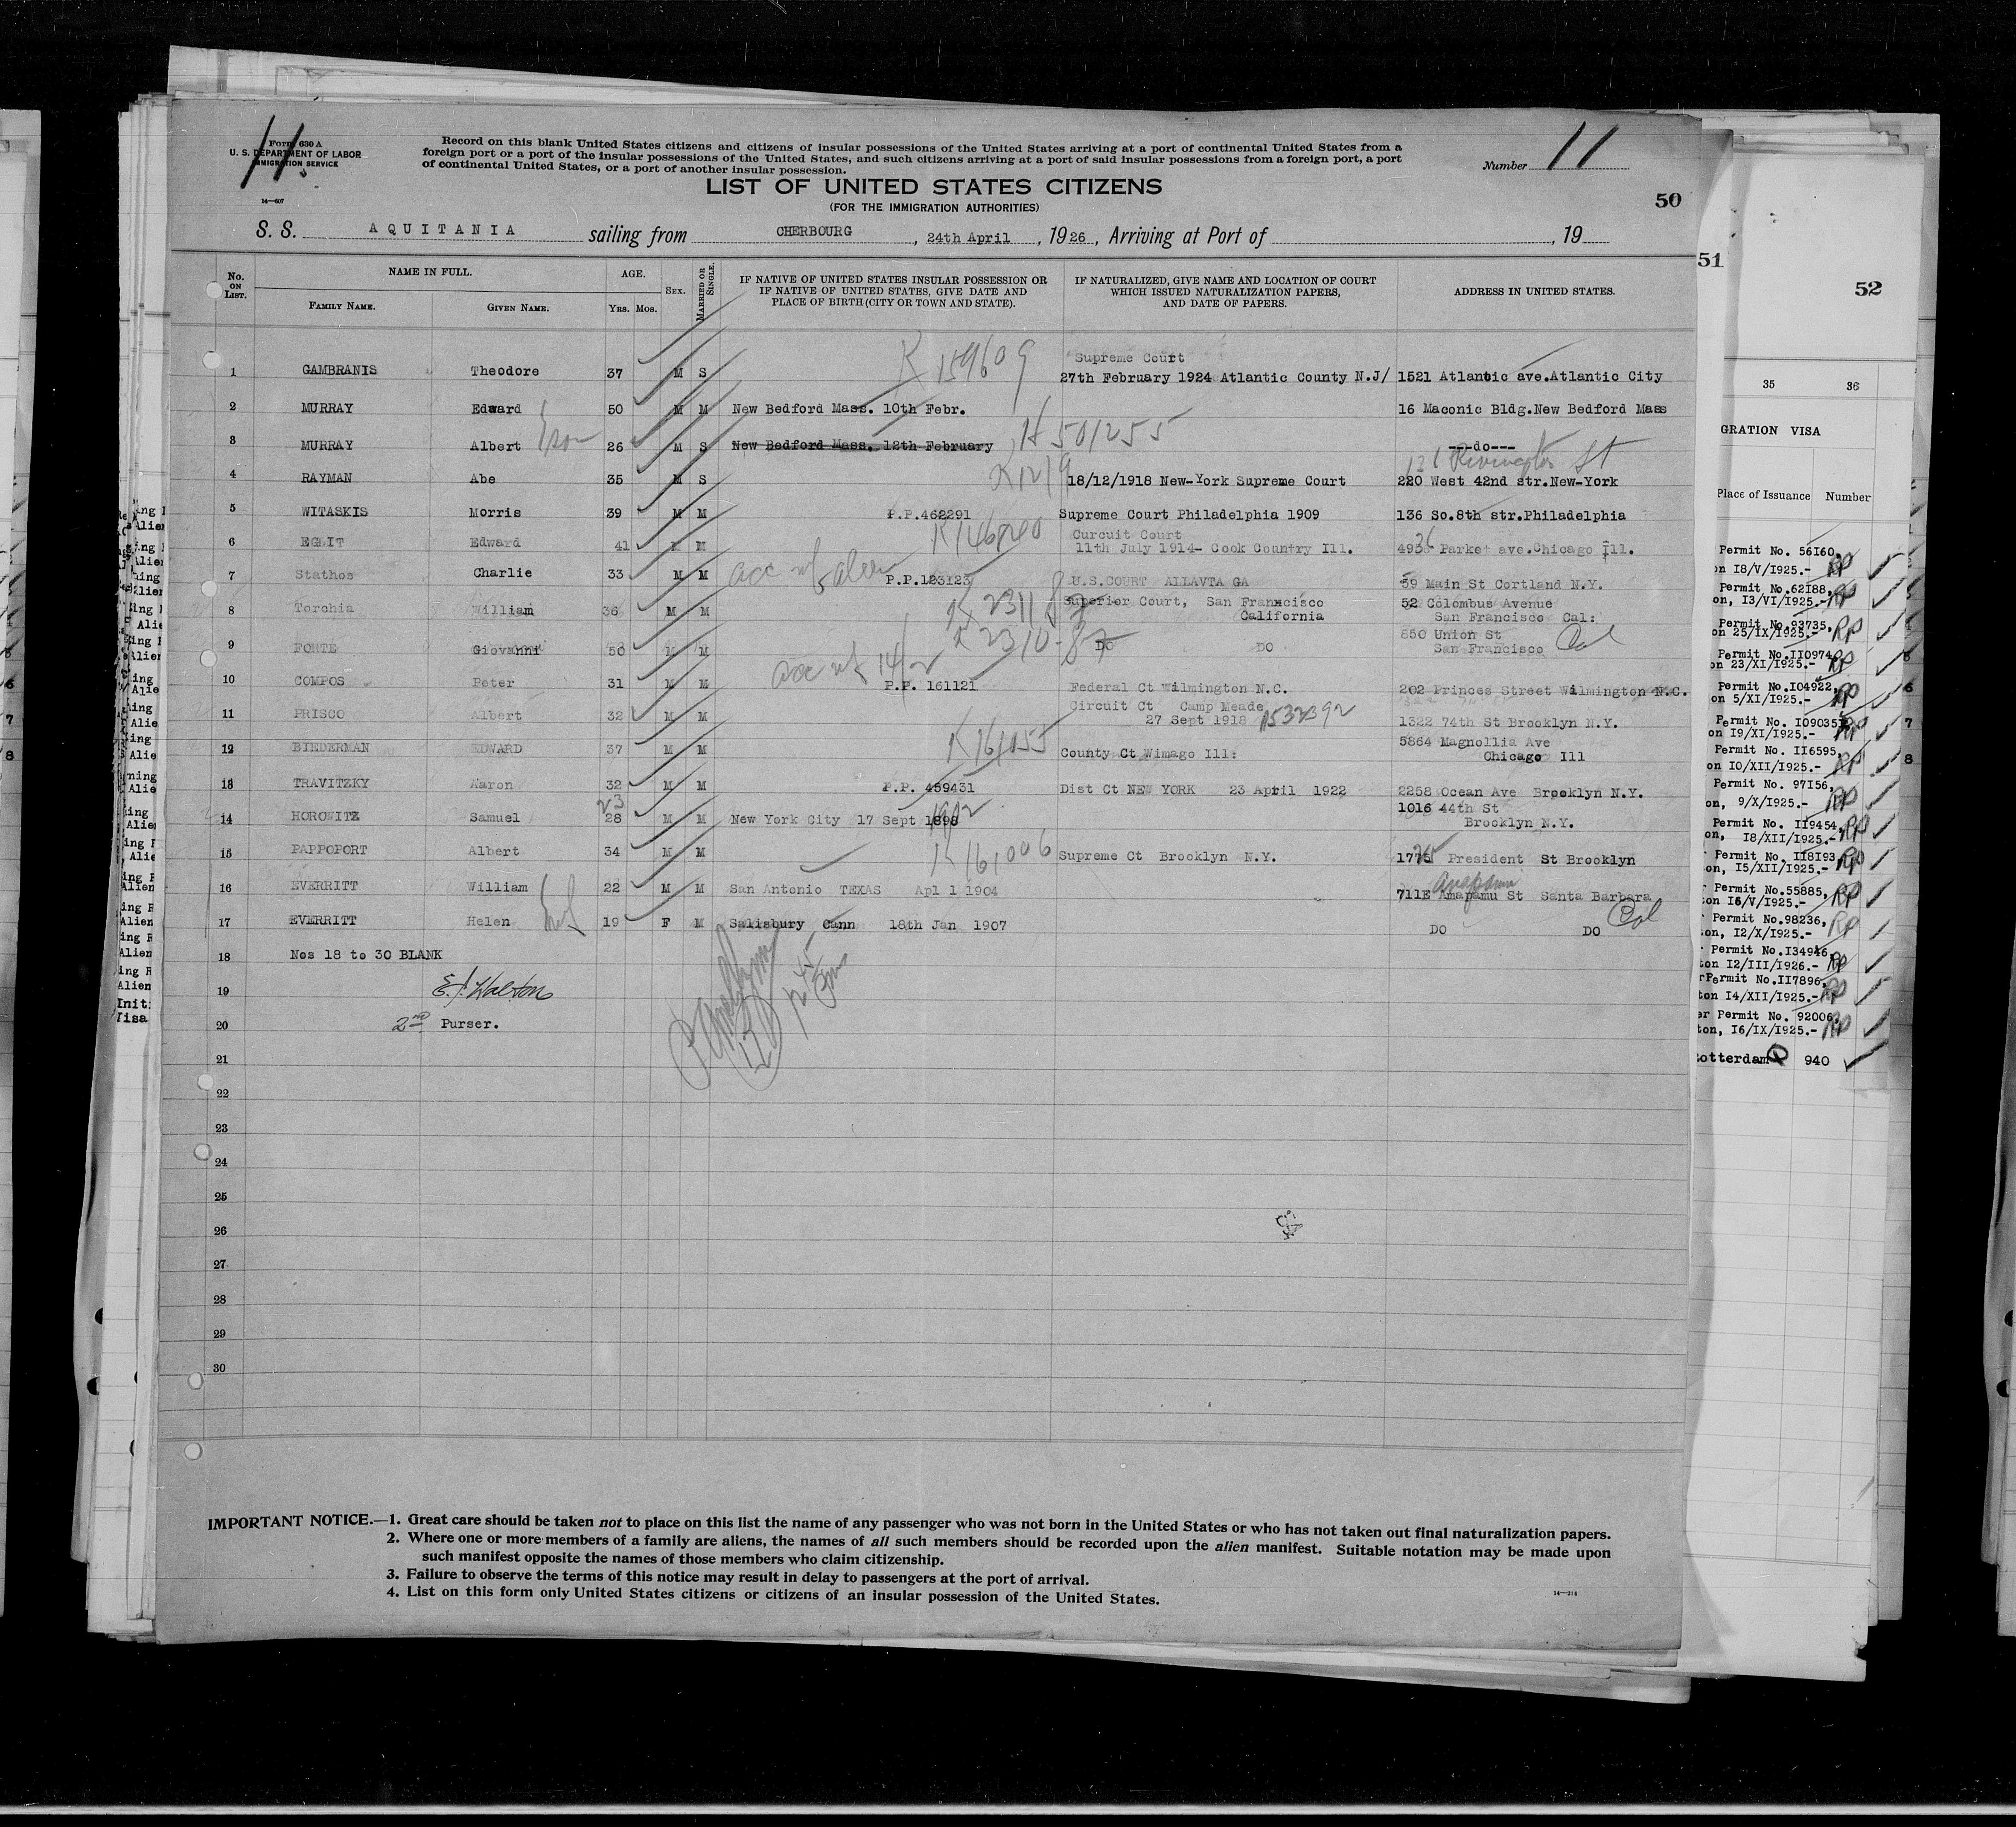 11
Form 630 A
U. S. DEPARTMENT OF LABOR
IMMIGRATION SERVICE
14—607
Record on this blank United States citizens and citizens of insular possessions of the United States arriving at a port of continental United States from a
foreign port or a port of the insular possessions of the United States, and such citizens arriving at a port of said insular possessions from a foreign port, a port
of continental United States, or a port of another insular possession.
Number 11
LIST OF UNITED STATES CITIZENS
(FOR THE IMMIGRATION AUTHORITIES)
50
S. S. AQUITANIA sailing from CHERBOURG, 24th April, 1926, Arriving at Port of , 19
No. ON LIST. NAME IN FULL. AGE. SEX. MARRIED OR SINGLE. IF NATIVE OF UNITED STATES INSULAR POSSESSION OR IF NATIVE OF UNITED STATES, GIVE DATE AND PLACE OF BIRTH (CITY OR TOWN AND STATE). IF NATURALIZED, GIVE NAME AND LOCATION OF COURT WHICH ISSUED NATURALIZATION PAPERS, AND DATE OF PAPERS. ADDRESS IN UNITED STATES.
FAMILY NAME. GIVEN NAME. YRS. MOS.
K 159609 Supreme Court
1 GAMBRANIS Theodore 37 M S 27th February 1924 Atlantic County N.J/ 1521 Atlantic ave.Atlantic City
2 MURRAY Edward 50 M M New Bedford Mass. 10th Febr. 16 Maconic Bldg.New Bedford Mass
3 MURRAY Albert 26 M S New Bedford Mass. 12th February H 501255 ---do---
131 Rivington St
4 RAYMAN Abe 35 M S 18/12/1918 New-York Supreme Court 220 West 42nd str.New-York
5 WITASKIS Morris 39 M M P.P.462291 Supreme Court Philadelphia 1909 136 So.8th str.Philadelphia
K 146740 Curcuit Court
6 EGLIT Edward 41 M M 11th July 1914- Cook Country Ill. 4936 Parket ave.Chicago Ill.
7 Stathos Charlie 33 M M P.P.123123 U.S.COURT ALLAVTA GA 59 Main St Cortland N.Y.
8 Torchia William 36 M M Superior Court, San Francisco 52 Colombus Avenue
California San Francisco Cal:
9 FORTE Giovanni 50 M M DO DO 850 Union St
San Francisco Cal
10 COMPOS Peter 31 M M P.P. 161121 Federal Ct Wilmington N.C. 202 Princes Street Wilmington N.C.
Circuit Ct Camp Meade
11 PRISCO Albert 32 M M 27 Sept 1918 1532392 1322 74th St Brooklyn N.Y.
12 BIEDERMAN EDWARD 37 M M K 161055 County Ct Wimago Ill: 5864 Magnollia Ave
Chicago Ill
13 TRAVITZKY Aaron 32 M M P.P. 459431 Dist Ct NEW YORK 23 April 1922 2258 Ocean Ave Brooklyn N.Y.
23 1902 1016 44th St
14 HOROWITZ Samuel 28 M M New York City 17 Sept 1898 Brooklyn N.Y.
15 PAPPOPORT Albert 34 M M K 161006 Supreme Ct Brooklyn N.Y. 1775 President St Brooklyn
Anapamu
16 EVERRITT William 22 M M San Antonio TEXAS Apl 1 1904 711E Amapamu St Santa Barbara
Cal
17 EVERRITT Helen 19 F M Salisbury Cann 18th Jan 1907 DO DO
18 Nos 18 to 30 BLANK
19 E. J. Walton
20 2nd Purser.
21
22
23
24
25
26
27
28
29
30
IMPORTANT NOTICE.—1. Great care should be taken not to place on this list the name of any passenger who was not born in the United States or who has not taken out final naturalization papers.
2. Where one or more members of a family are aliens, the names of all such members should be recorded upon the alien manifest. Suitable notation may be made upon
such manifest opposite the names of those members who claim citizenship.
3. Failure to observe the terms of this notice may result in delay to passengers at the port of arrival.
4. List on this form only United States citizens or citizens of an insular possession of the United States.
14—214
51
52
35 36
GRATION VISA
Place of Issuance Number
Permit No. 56I60,
on I8/V/I925.- RP
Permit No.62I88,
on, I3/VI/I925.- RP
Permit No.93735,
on 25/IX/I925.- RP
Permit No.II0974,
on 23/XI/I925.- RP
Permit No.I04922,
on 5/XI/I925.- RP
Permit No. I09035
on I9/XI/I925.- RP
Permit No. II6595,
on I0/XII/I925.- RP
Permit No. 97I56,
on, 9/X/I925.- RP
Permit No. II9454,
on, I8/XII/I925.- RP
Permit No. II8I93,
on, I5/XII/I925.- RP
Permit No.55885,
on I6/V/I925.- RP
Permit No.98236,
on, I2/X/I925.- RP
Permit No.I34946,
ton I2/III/I926.- RP
Permit No.II7896,
ton I4/XII/I925.- RP
er Permit No. 92006,
ton, I6/IX/I925.- RP
Rotterdam 940